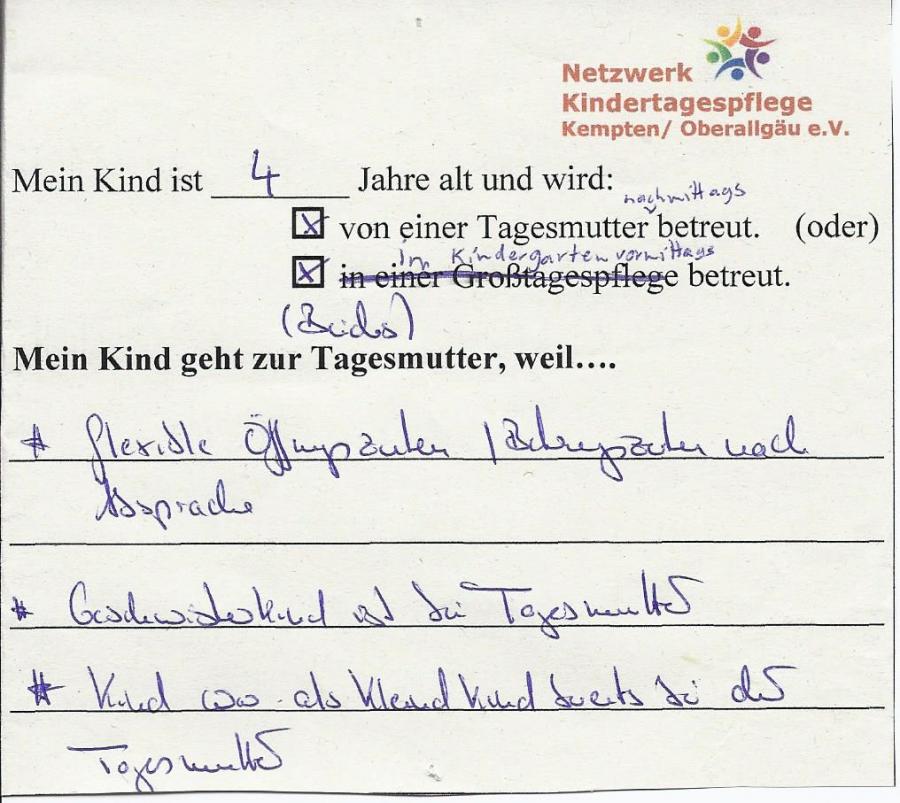 Netzwerk
Kindertagespflege
Kempten/ Oberallgäu e.V.
Mein Kind ist 4 Jahre alt und wird:
nachmittags
☒ von einer Tagesmutter betreut. (oder)
im Kindergarten vormittags
☒ in einer Großtagespflege betreut.
(Beides)
Mein Kind geht zur Tagesmutter, weil....
* flexible Öffnungszeiten / Betreuungszeiten nach
Absprache
* Geschwisterkind ist bei Tagesmutter
* Kind war als Kleinkind bereits bei der
Tagesmutter